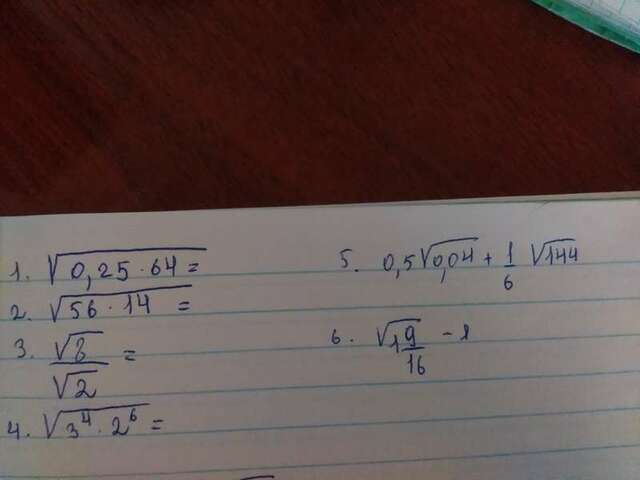 1. √0,25·64 =
2. √56·14 =
3. √8/√2 =
4. √3⁴·2⁶ =
5. 0,5√0,04 + 1/6 √144
6. √1 9/16 - 1